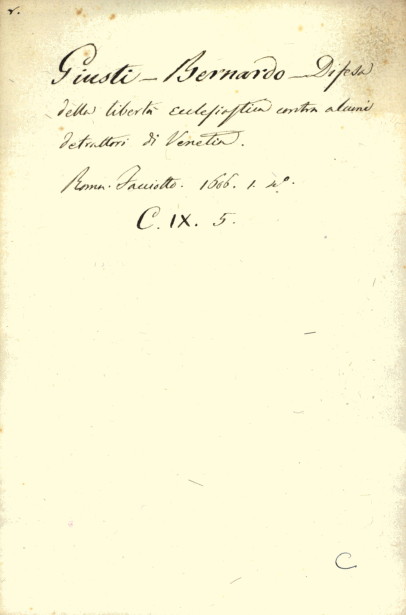 r.
Giusti - Bernardo - Difesa
della libertà ecclesiastica contra alcuni
detrattori di Venetia.
Roma. Facciotto. 1606. 1. 4º.
C. IX. 5.
C